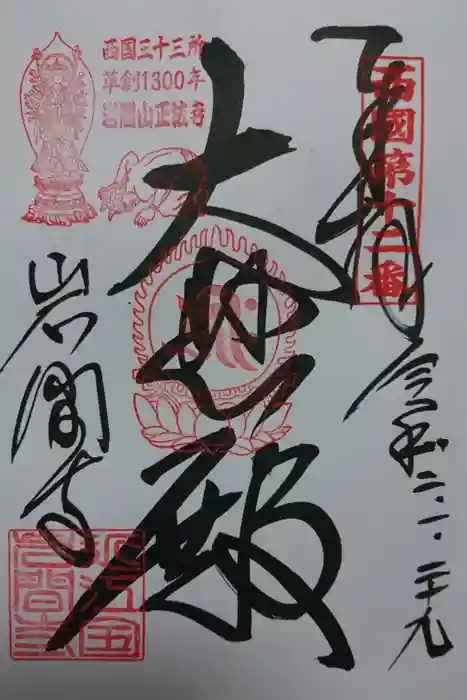 奉拝
西國第十二番
令和二.一.二十九
大悲殿
西国三十三所
草創1300年
岩間山正法寺
岩間寺
近江国
岩間寺